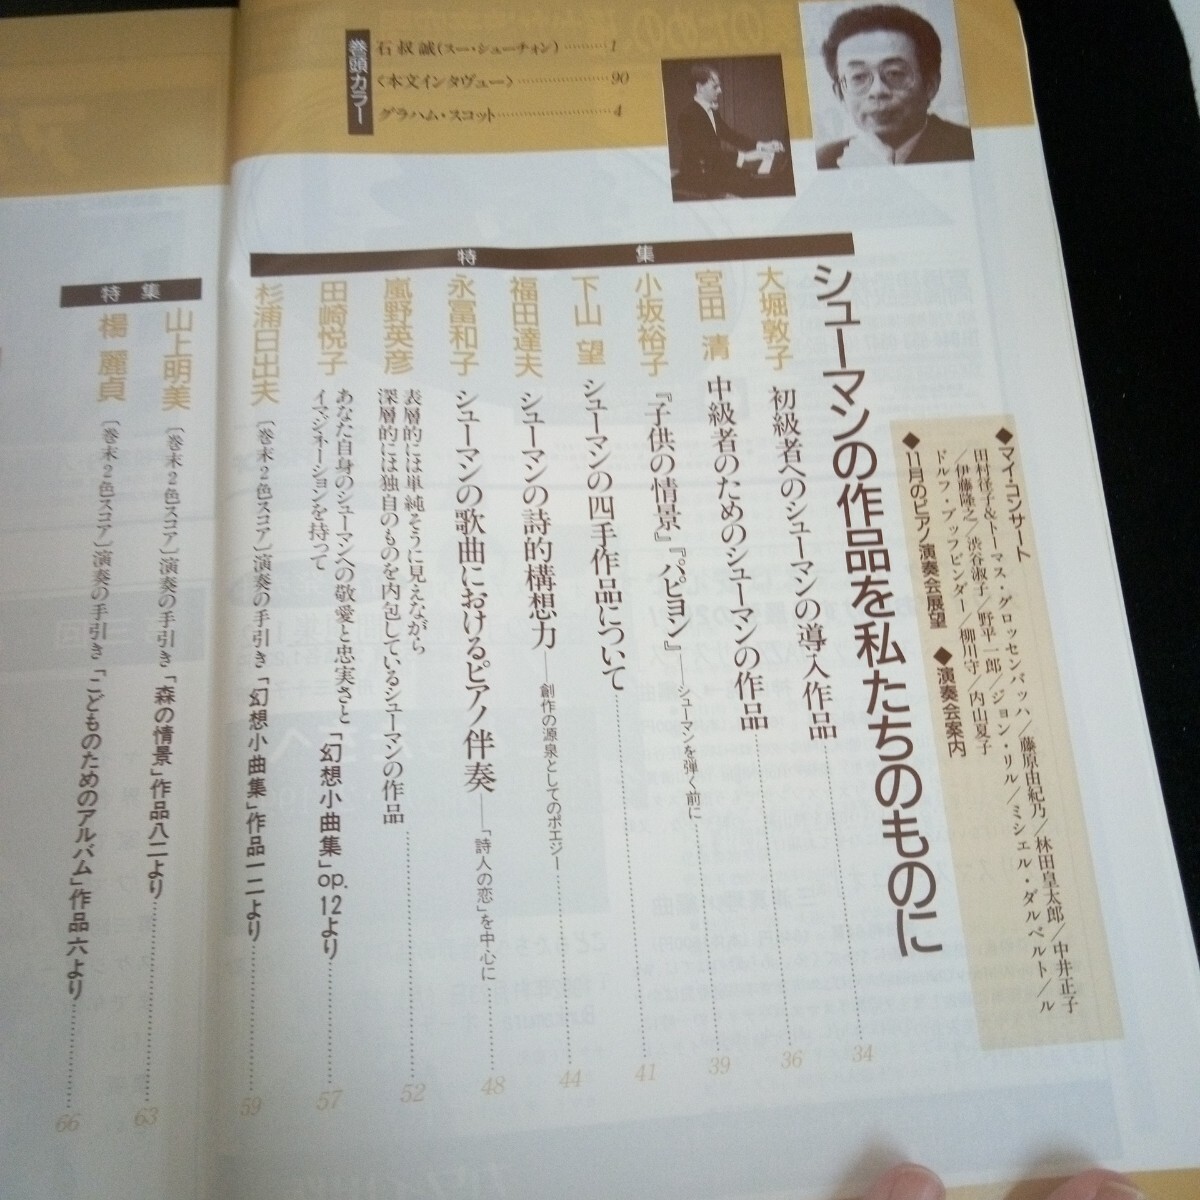 巻頭カラー
石叔誠(スー・シューチォン)………1
〈本文インタヴュー〉………90
グラハム・スコット………4
◆マイ・コンサート
田村径子&トーマス・グロッセンバッハ/藤原由紀乃/林田皇太郎/中井正子
/伊藤隆之/渋谷淑子/野平一郎/ジョン・リル/ミシェル・ダルベルト/ル
ドルフ・ブッフビンダー/柳川守 内山夏子
◆11月のピアノ演奏会展望 ◆演奏会案内
特集
シューマンの作品を私たちのものに………34
大堀敦子 初級者へのシューマンの導入作品………36
宮田 清 中級者のためのシューマンの作品………39
小坂裕子 『子供の情景』『パピヨン』―シューマンを弾く前に………41
下山 望 シューマンの四手作品について………44
福田達夫 シューマンの詩的構想力―創作の源泉としてのポエジー………
永冨和子 シューマンの歌曲におけるピアノ伴奏―「詩人の恋」を中心に………48
嵐野英彦 表層的には単純そうに見えながら
深層的には独自のものを内包しているシューマンの作品………52
田崎悦子 あなた自身のシューマンへの敬愛と忠実さと
イマジネーションを持って 「幻想小曲集」op.12より………57
杉浦日出夫 〔巻末2色スコア〕演奏の手引き「幻想小曲集」作品一二より………59
特集
山上明美 〔巻末2色スコア〕演奏の手引き「森の情景」作品八二より………63
楊 麗貞 〔巻末2色スコア〕演奏の手引き「こどものためのアルバム」作品六より………66